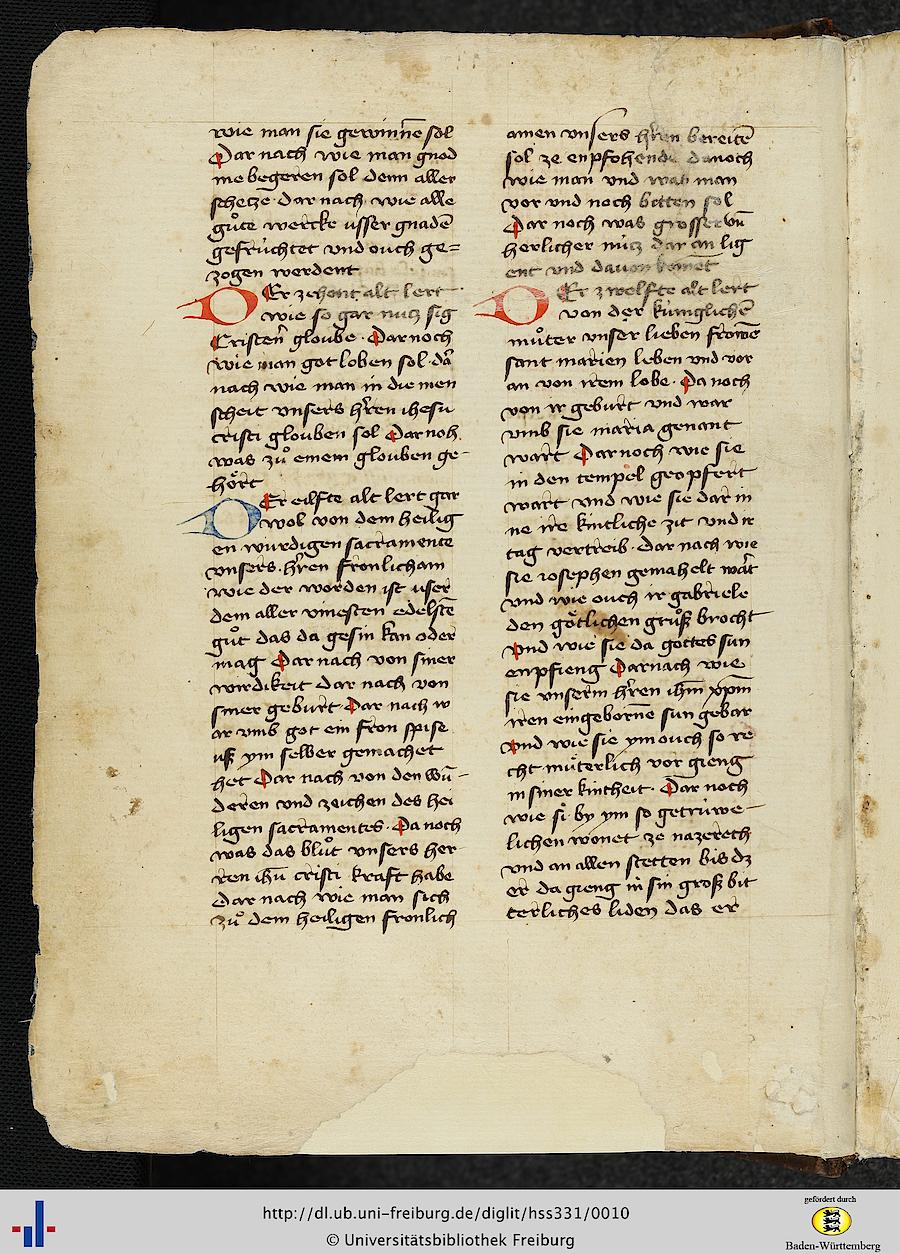 wie man sie gewinnē sol
Dar nach wie man gnod
me begeren sol denn aller
schetze · dar nach wie alle
gůte wercke usser gnadē
gefrüchtet vnd ouch ge=
zogen werdent
DEr zehent alt lert
wie so gar nutz sig
Cristen gloube · Dar noch
wie man got loben sol · dar
nach wie man in die men
scheit vnsers hren ihesu
cristi glouben sol Dar noh
was zů einem glouben ge-
hört
DEr eilfte alt lert gar
wol von dem heilig
en wurdigen sacramente
vnsers hren fronlicham
wie der worden ist user
dem aller vinesten edelstē
gůt das da gesin kan oder
mag Dar nach von siner
wirdikeit dar nach von
siner geburt Dar nach w
ar vmb got ein fron spise
uß ym selber gemachet
het Dar nach von den wū-
deren vnd zeichen des hei
ligen sacramentes · Da noch
was das blůt vnsers her-
ren ihū cristi kraft habe
dar nach wie man sich
zů dem heiligen fronlich
amen vnsers hren bereitē
sol ze enpfohende danoch
wie man vnd was man
vor vnd noch bitten sol
Dar noch was grosser vn̄
herlicher nutz dar an lig
ent vnd dauon komēt
DEr zwelfte alt lert
von der künglichē
můter vnser lieben frowē
sant marien leben vnd vor
an von irem lobe · Da noch
von ir geburt vnd war
vmb sie maria genant
wart Dar noch wie sie
in den tempel geopfert
wart vnd wie sie dar in
ne ire kintliche zit vnd ir
tag vertreib · Dar nach wie
sie iosephen gemahelt wart
vnd wie ouch ir gabriele
den götlichen grůß brocht
vnd wie sie da gottes sun
enpfieng Dar nach wie
sie vnserm hren ihm xpm
iren eingebornē sun gebar
vnd wie sie ym ouch so re
cht můterlich vor gieng
in siner kintheit · Dar noch
wie si by ym so getrúwe-
lichen wonet ze nazereth
vnd an allen stetten bis dz
er da gieng in sin groß bit
terliches liden das er
http://dl.ub.uni-freiburg.de/diglit/hss331/0010
© Universitätsbibliothek Freiburg
gefördert durch
Baden-Württemberg